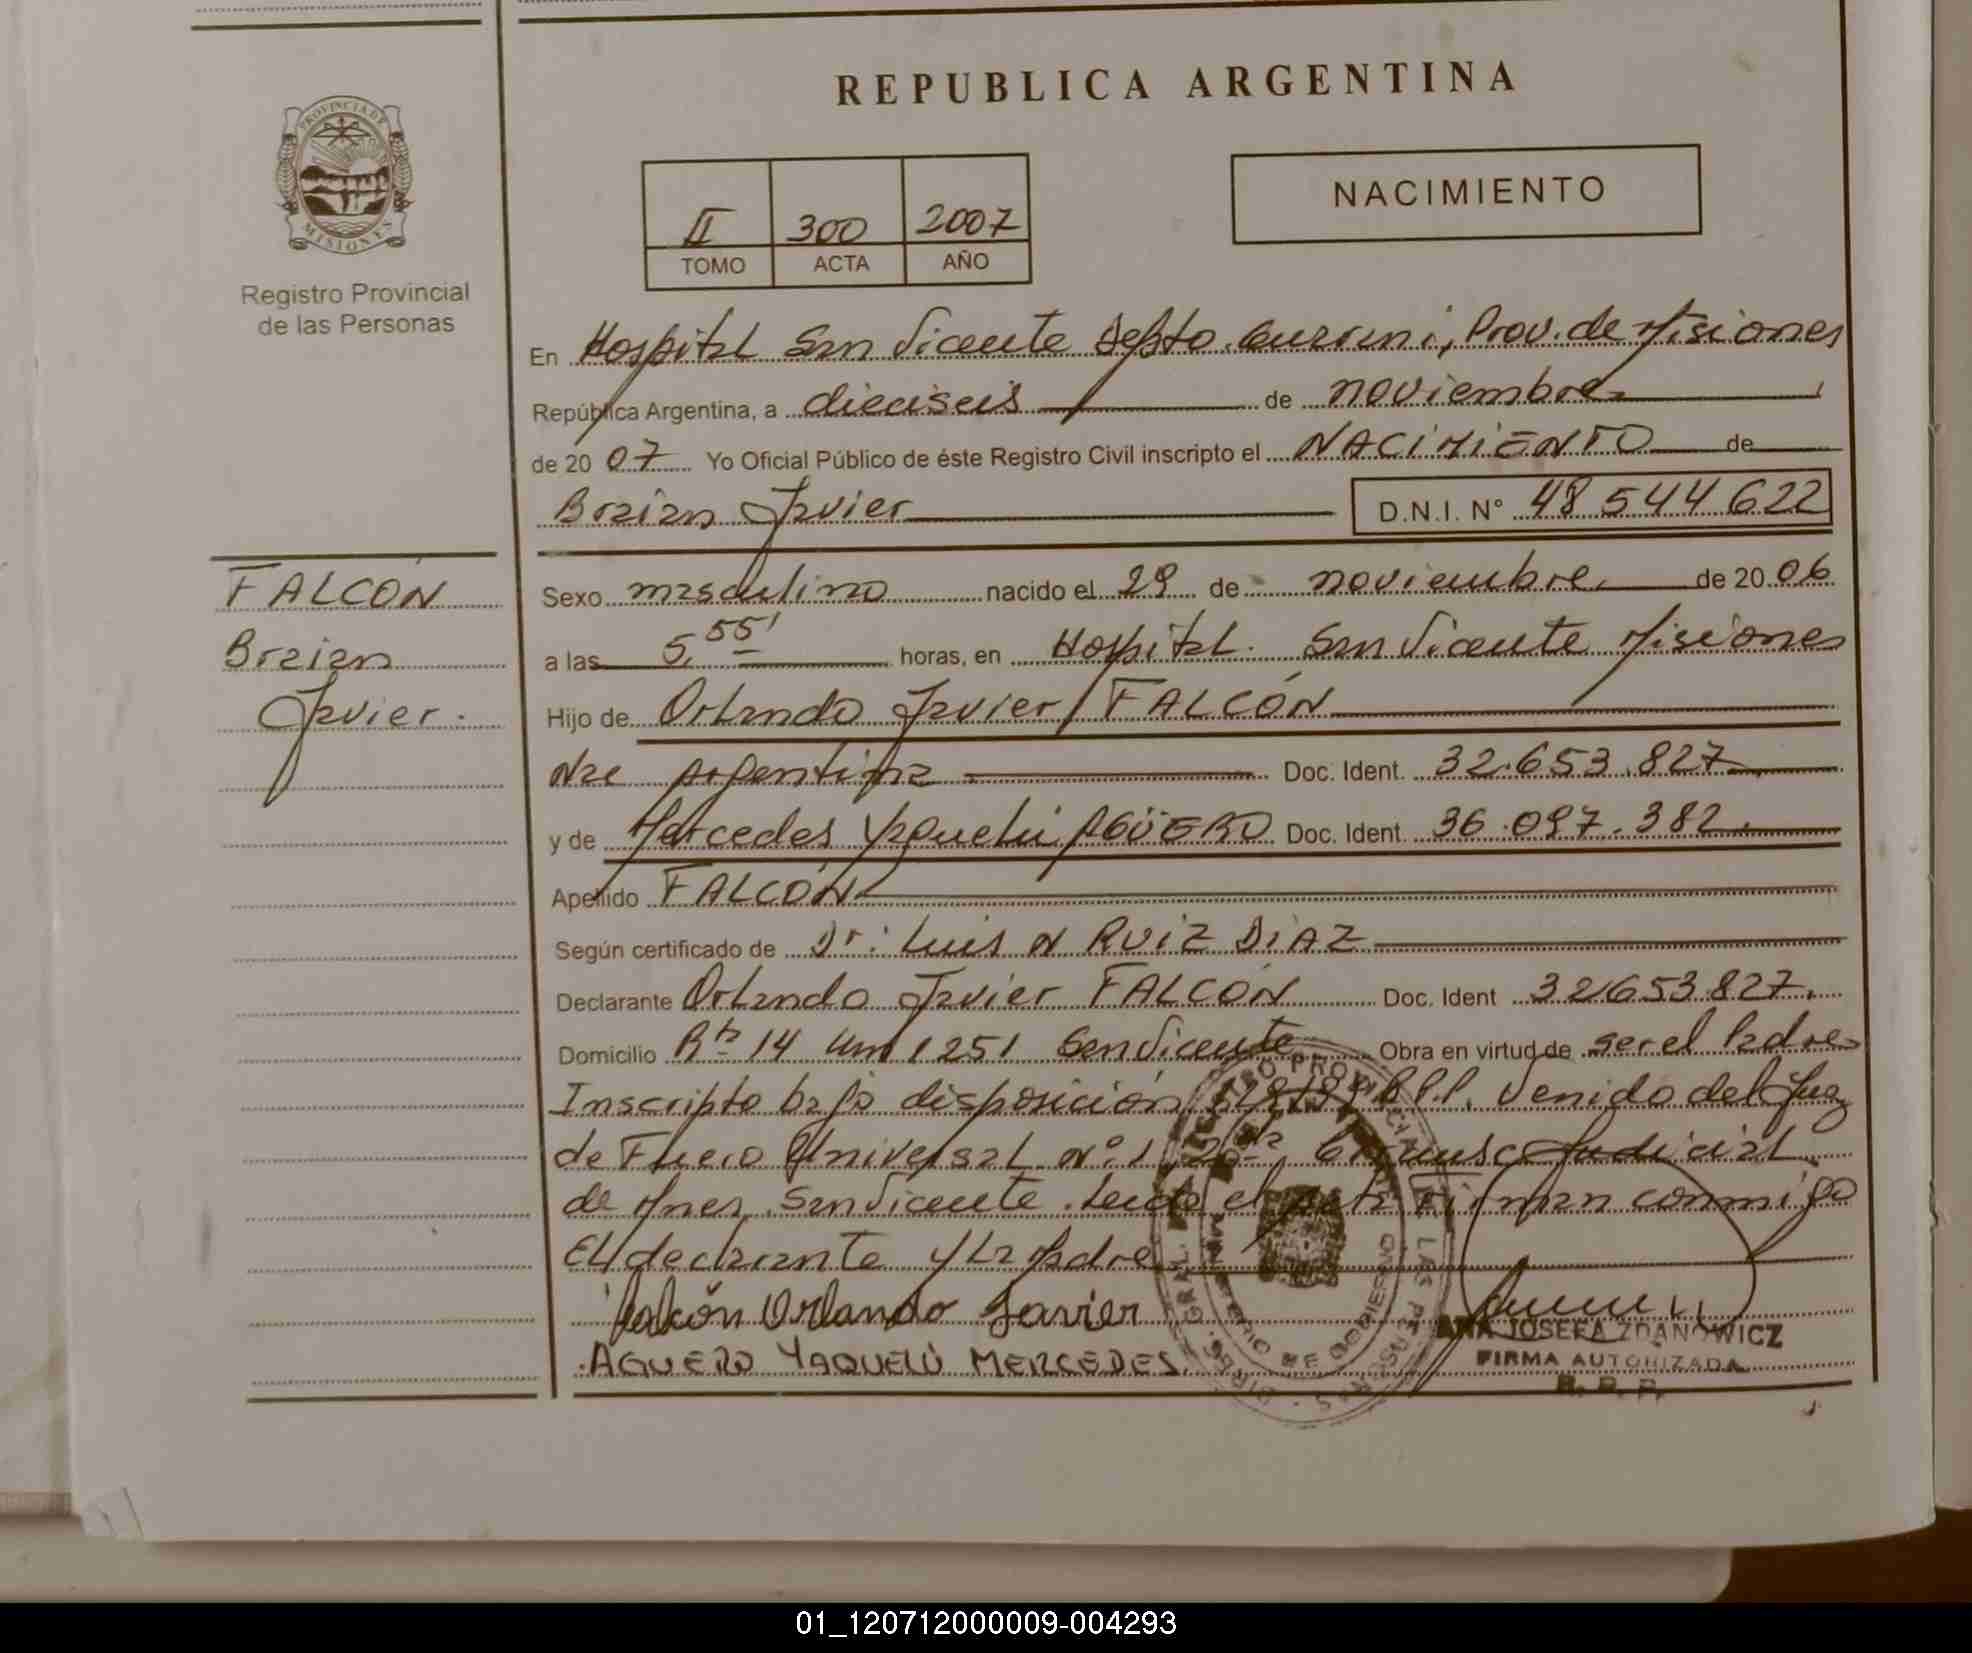 REPUBLICA ARGENTINA
PROVINCIA DE
MISIONES
Registro Provincial
de las Personas
II 300 2007
TOMO ACTA AÑO
NACIMIENTO
En Hospital San Vicente Depto. Guarani, Prov. de Misiones
República Argentina, a dieciseis de noviembre
de 20 07 Yo Oficial Público de éste Registro Civil inscripto el NACIMIENTO de
Braian Javier D.N.I. N° 48 544 622
FALCÓN
Braian
Javier.
Sexo masculino nacido el 29 de noviembre de 20 06
a las 5,55' horas, en Hospital San Vicente Misiones
Hijo de Orlando Javier FALCÓN
Nac Argentina Doc. Ident. 32.653.827
y de Mercedes Yaqueli AGÜERO Doc. Ident. 36.097.382.
Apellido FALCÓN
Según certificado de Dr. Luis N RUIZ DIAZ
Declarante Orlando Javier FALCÓN Doc. Ident 32653827.
Domicilio Rta 14 Km 1251 San Vicente Obra en virtud de ser el Padre
Inscripto bajo disposición R.P.P. Venido del Juz
de Fuero Universal N° 1, 2da Circunsc Judicial
de Mnes. San Vicente. Leida el acta Firman conmigo
El declarante y La Madre
Falcón Orlando Javier
AGUERO YAQUELI MERCEDES.
ANA JOSEFA ZDANOWICZ
FIRMA AUTORIZADA
R. P. P.
01_120712000009-004293